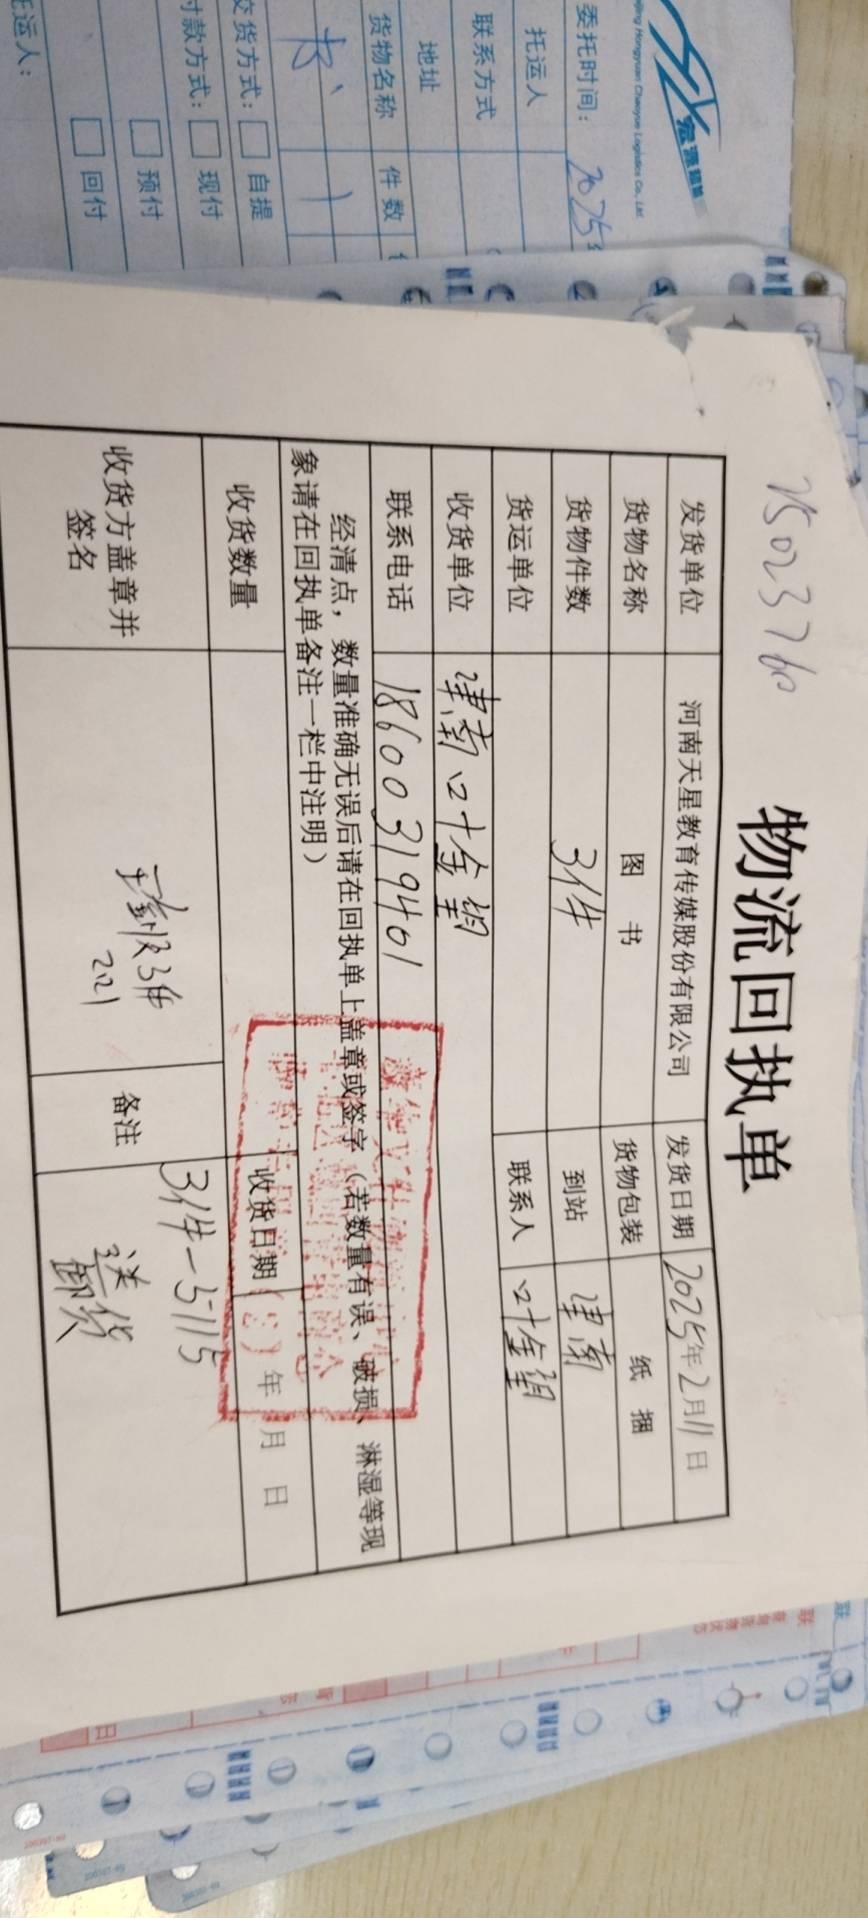 物流回执单
7502376
发货单位 河南天星教育传媒股份有限公司 发货日期 2025年2月11日
货物名称 图 书 货物包装 纸 捆
货物件数 3件 到站 津南
货运单位 联系人 叶金钥
收货单位 津南 叶金钥
联系电话 18600319401
经清点，数量准确无误后请在回执单上盖章或签字（若数量有误、破损、淋湿等现
象请在回执单备注一栏中注明）
收货数量 收货日期 年 月 日
收货方盖章并
签名
3件
2.21
备注 3件-5115
送货
卸货
宏源超越
Hongyuan Chaoyue Logistics Co., Ltd
委托时间： 2025
托运人
联系方式
地址
货物名称 件数
书 1
交货方式： 自提
付款方式： 现付
预付
回付
托运人：